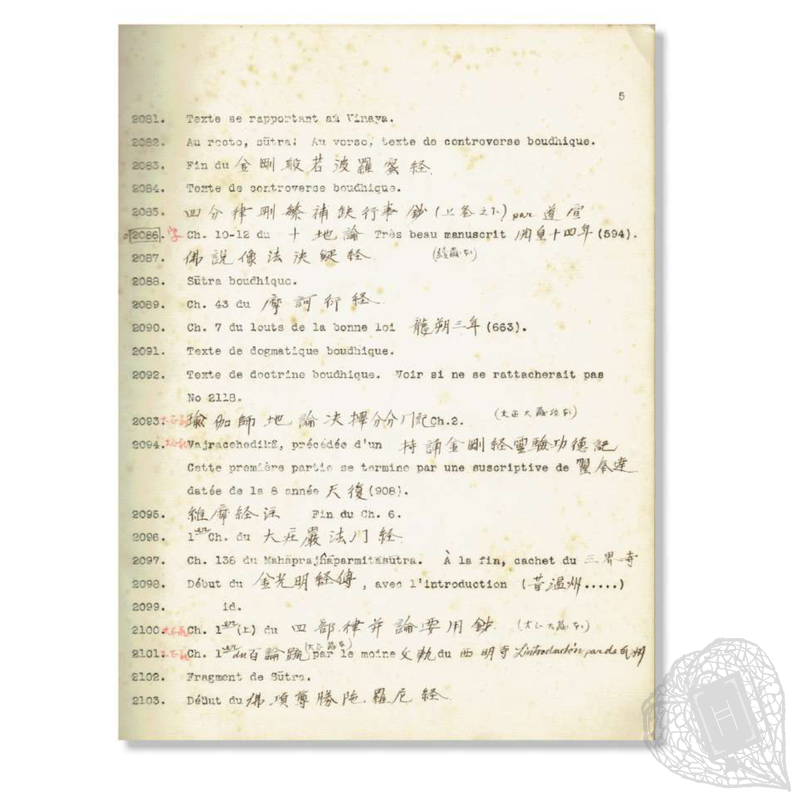 5
2081. Texte se rapportant au Vinaya.
2082. Au recto, sūtra; Au verso, texte de controverse boudhique.
2083. Fin du 金剛般若波羅蜜経
2084. Texte de controverse boudhique.
2085. 四分律刪繁補缺行事鈔(上卷之下) par 道宣
2086. Ch. 10-12 du 十地論 Très beau manuscrit 開皇十四年(594).
2087. 佛説像法決疑経 (続蔵本)
2088. Sūtra boudhique.
2089. Ch. 43 du 摩訶衍経
2090. Ch. 7 du louts de la bonne loi 龍朔三年(663).
2091. Texte de dogmatique boudhique.
2092. Texte de doctrine boudhique. Voir si ne se rattacherait pas
No 2118.
2093. 瑜伽師地論决擇分分門記Ch.2.
2094. Vajracchedikā, précédée d'un 持誦金剛経霊驗功德記
Cette première partie se termine par une suscriptive de 翟奉達
datée de la 8 année 天復(908).
2095. 維摩経注 Fin du Ch. 6.
2096. 1er Ch. du 大荘嚴法門経
2097. Ch. 138 du Mahāprajñāparmitāsūtra. À la fin, cachet du 三界寺
2098. Début du 金光明経傳, avec l'introduction (昔温州.....)
2099. id.
2100. Ch. 1er(上) du 四部律并論要用鈔 (大正大蔵本)
2101. Ch. 1er du 百論疏 par le moine 文軌 du 西明寺 L'introduction par de
2102. Fragment de Sūtra.
2103. Début du 佛頂尊勝陁羅尼経
H